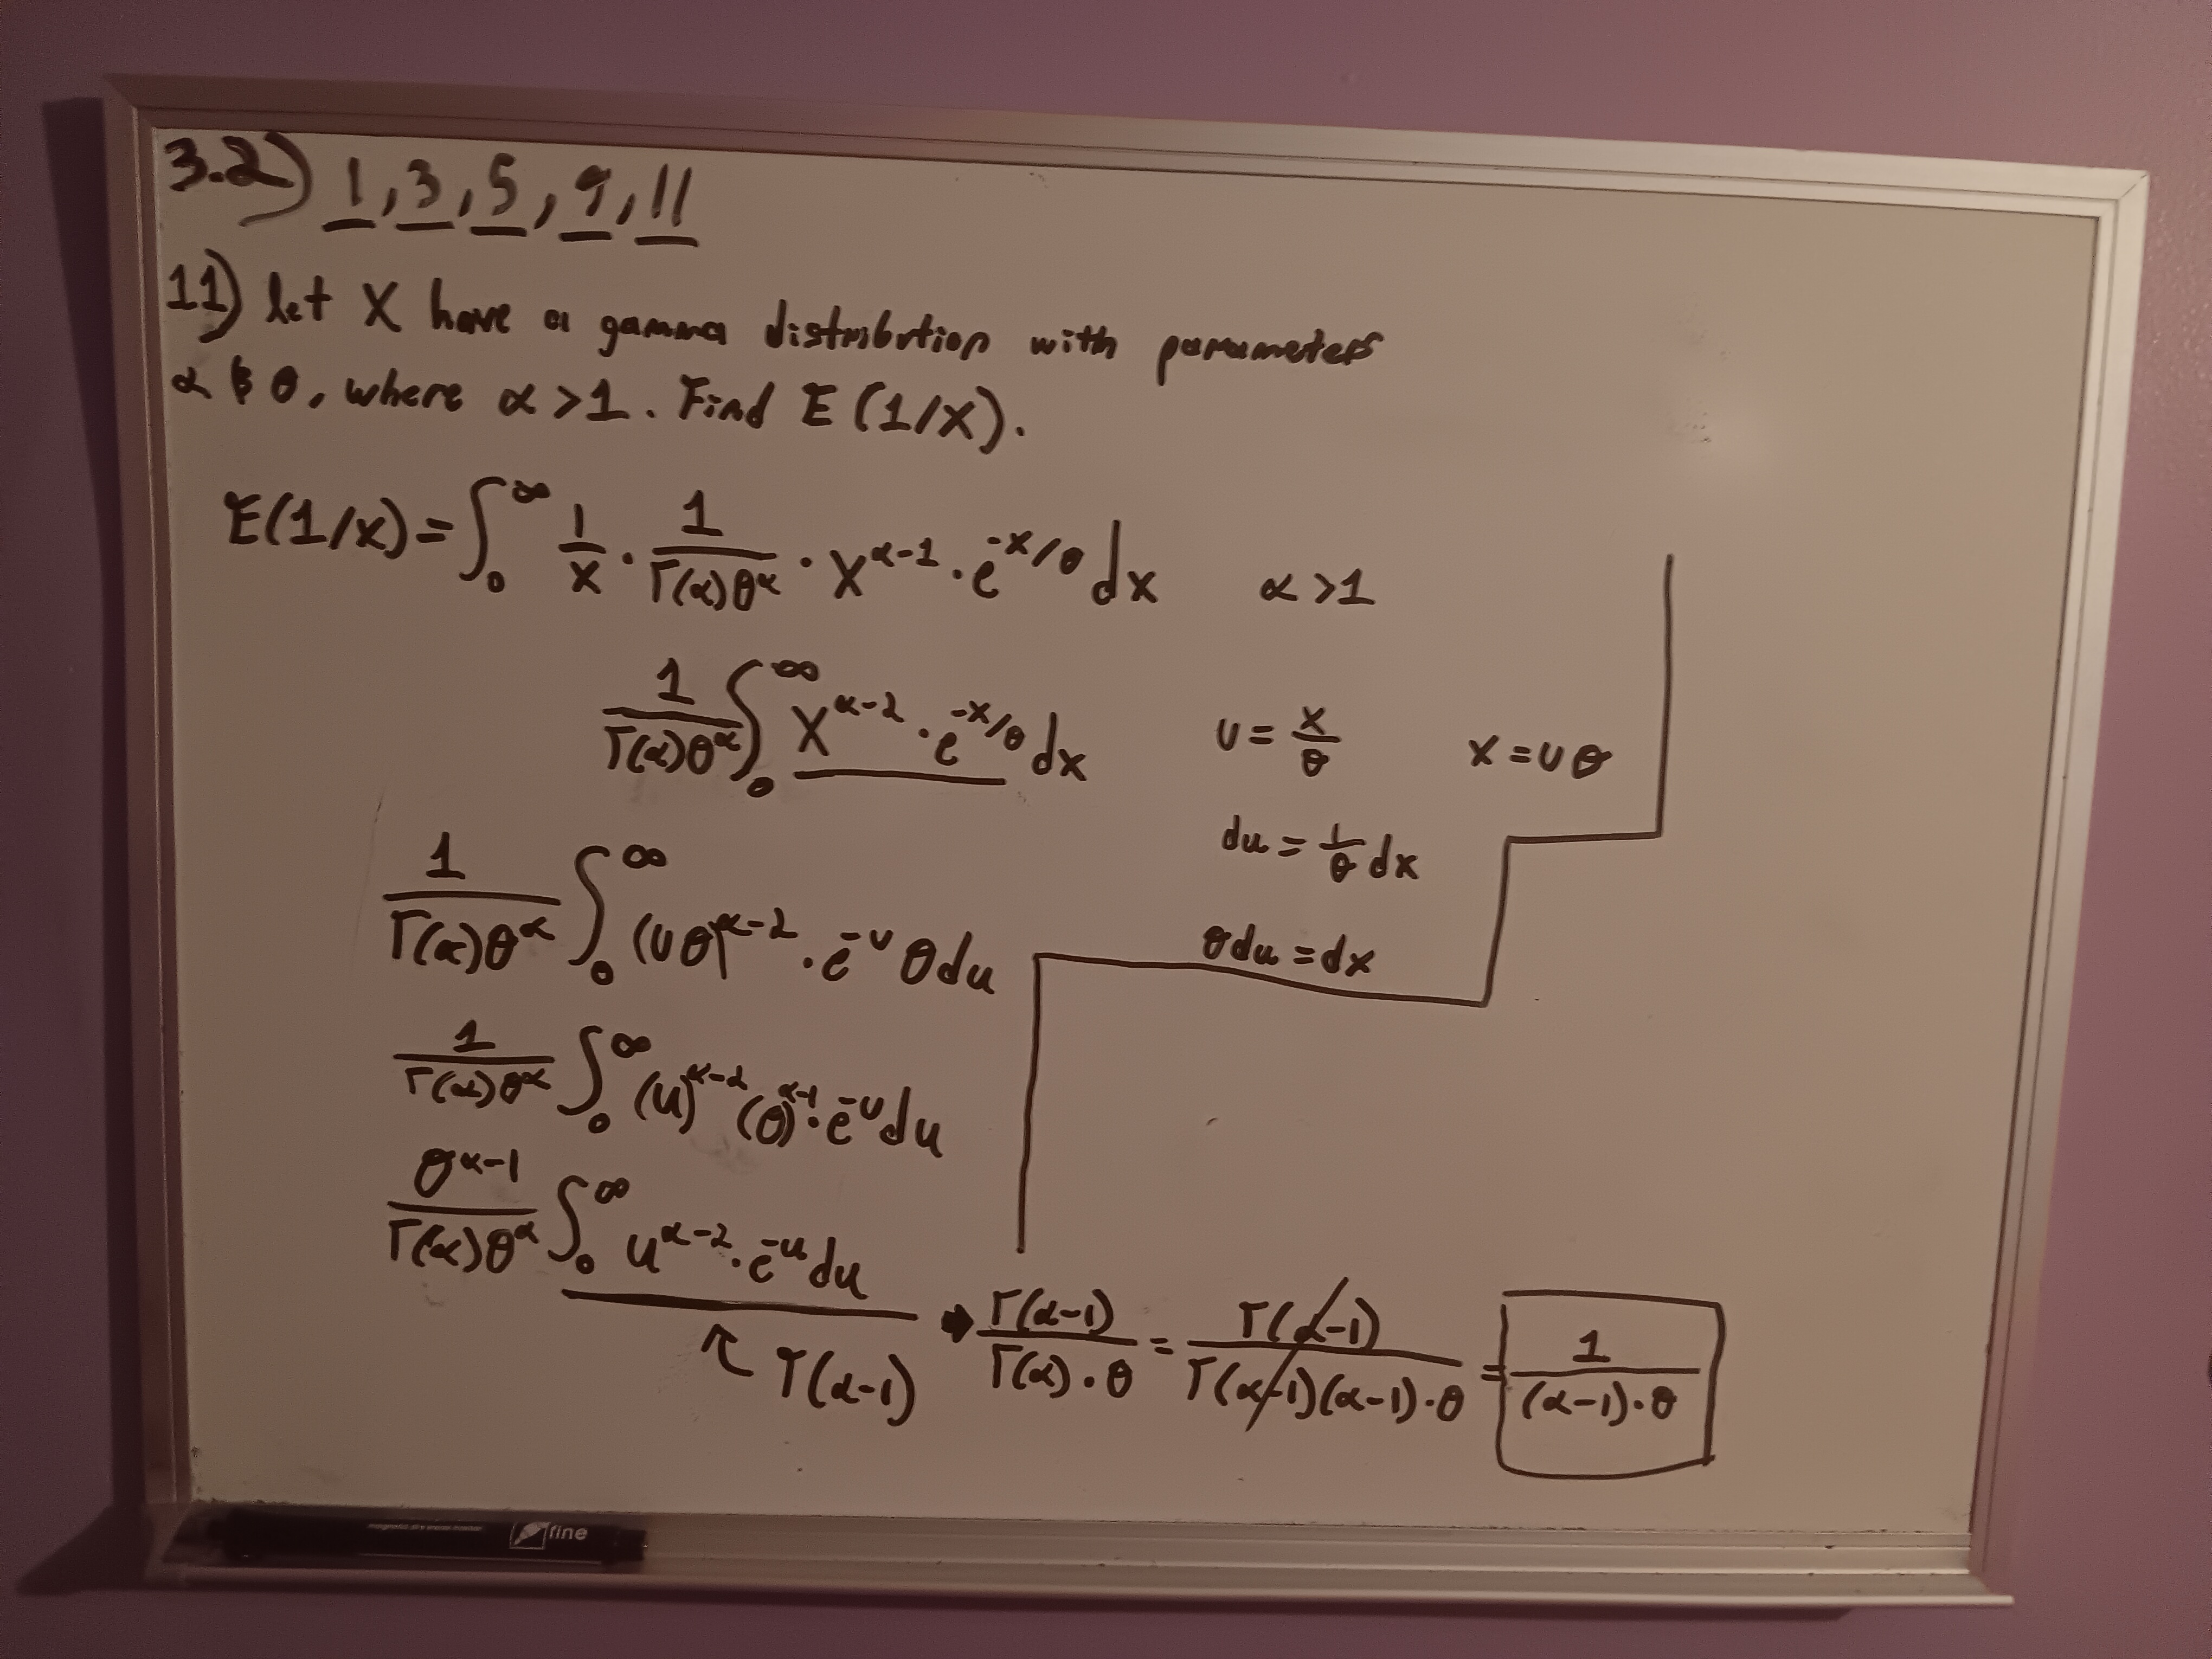 3.2) 1, 3, 5, 9, 11
11) let X have a gamma distribution with parameters
α & θ, where α > 1. Find E(1/X).
E(1/x) = ∫₀^∞ 1/x · 1/(Γ(α)θ^α) · x^(α-1) · e^(-x/θ) dx   α > 1
1/(Γ(α)θ^α) ∫₀^∞ x^(α-2) · e^(-x/θ) dx   u = x/θ   x = uθ
du = 1/θ dx
1/(Γ(α)θ^α) ∫₀^∞ (uθ)^(α-2) · e^(-u) θdu   θdu = dx
1/(Γ(α)θ^α) ∫₀^∞ (u)^(α-2) (θ)^(α-1) · e^(-u) du
θ^(α-1)/(Γ(α)θ^α) ∫₀^∞ u^(α-2) · e^(-u) du
↖ Γ(α-1) → Γ(α-1)/(Γ(α)·θ) = Γ(α-1)/(Γ(α-1)(α-1)·θ) = 1/((α-1)·θ)
fine